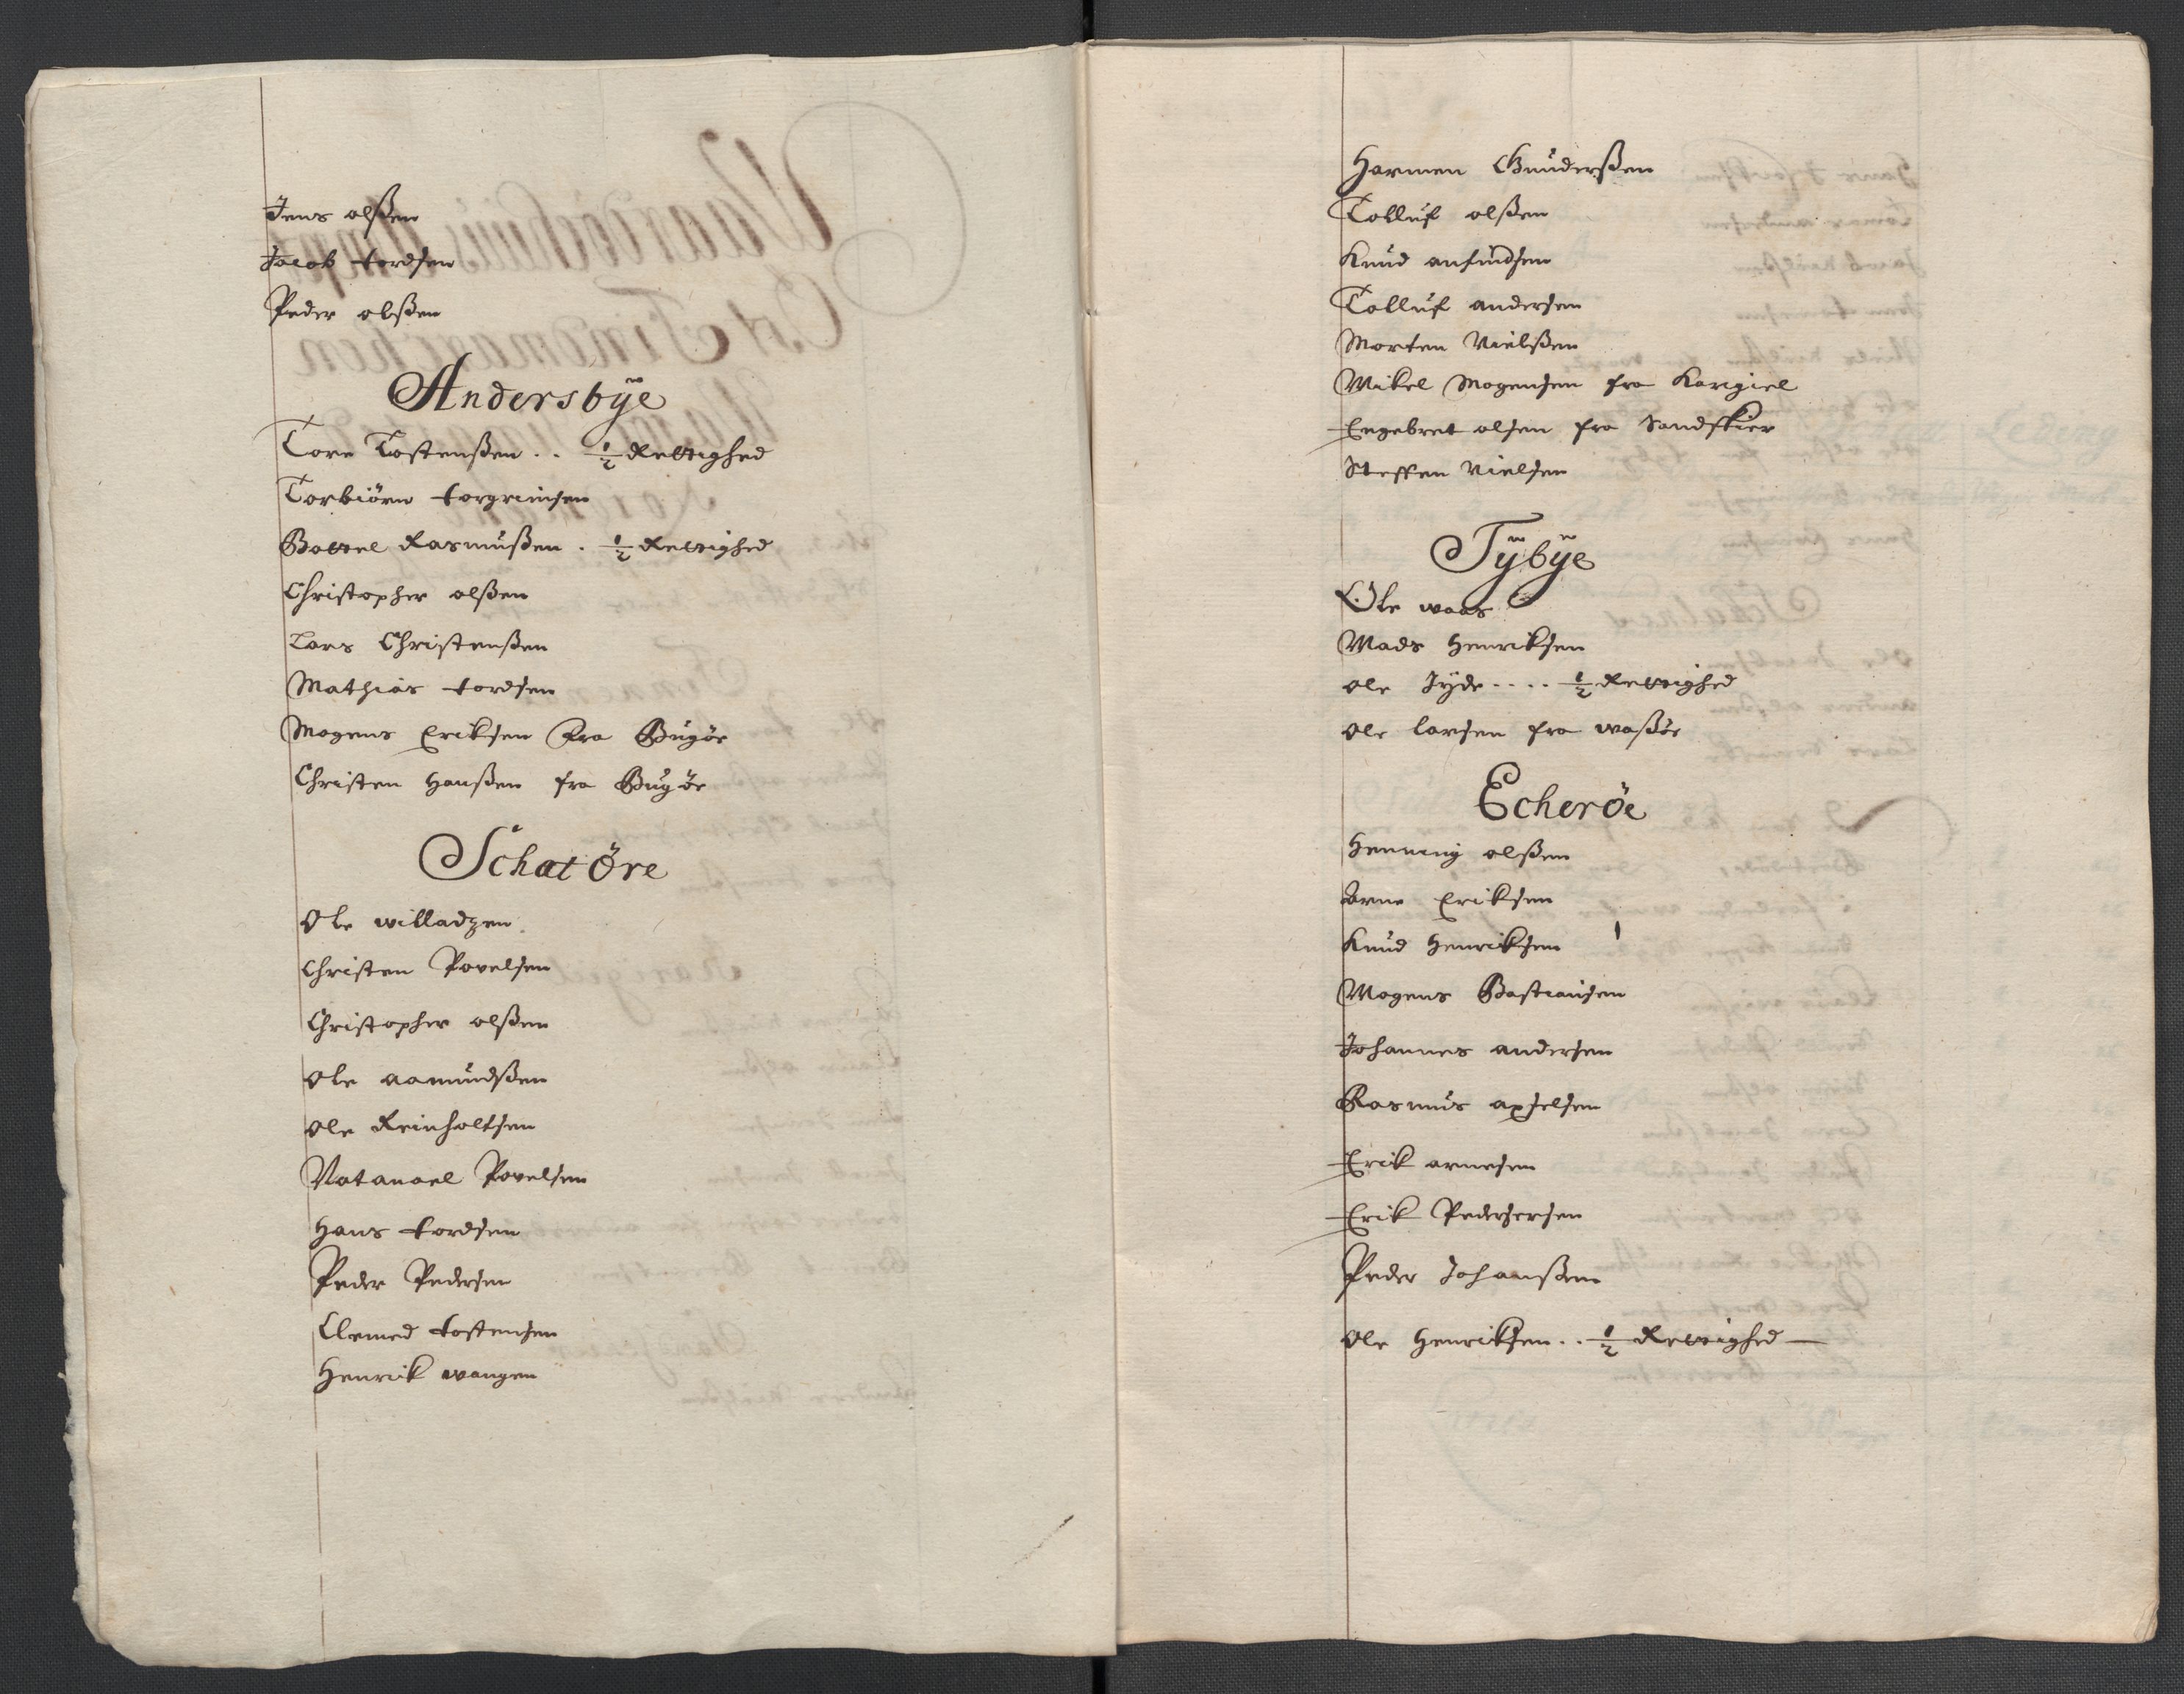 Jens olßen
Jacob tordsen
Peder olßen
Andersbÿe
Tore Tostenßen .. ½ Rettighed
Torbiörn torgrimsen
Bottel Rasmußen . ½ Rettighed
Christopher olßen
Lars Christenßen
Mathias tordsen
Mogens Eriksen fra Bugöe
Christen Hanßen fra Bugöe
Schatöre
Ole willadzen
Christen Povelsen
Christopher olßen
Ole aamundßen
Ole Reinholtsen
Natanael Povelsen
Hans tordsen
Peder Pedersen
Clemed tostensen
Henrik wangen
Harmen Gunderßen
Tolluf olßen
Knud anfindsen
Tolluf andersen
Morten Nielßen
Mikel Mogensen fra Kargiel
Engebret olsen fra Sandskier
Steffen Nielsen
Tÿbÿe
Ole waas
Mads Henriksen
ole Jÿde .... ½ Rettighed
ole larsen fra waßöe
Echeröe
Henning olßen
Arne Eriksen
Knud Henriksen
Mogens Bastiansen
Johannes andersen
Rasmus axselsen
Erik arnesen
Erik Pedersersen
Peder Johanßen
Ole Henriksen .. ½ Rettighed